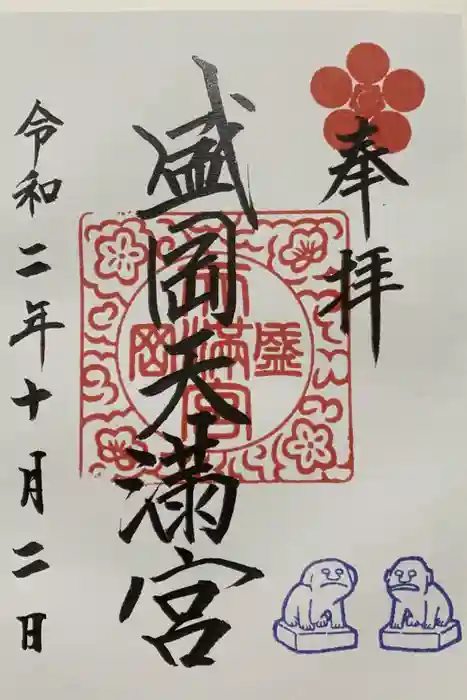 奉拝
盛岡天満宮
盛岡
天満宮
令和二年十月二日